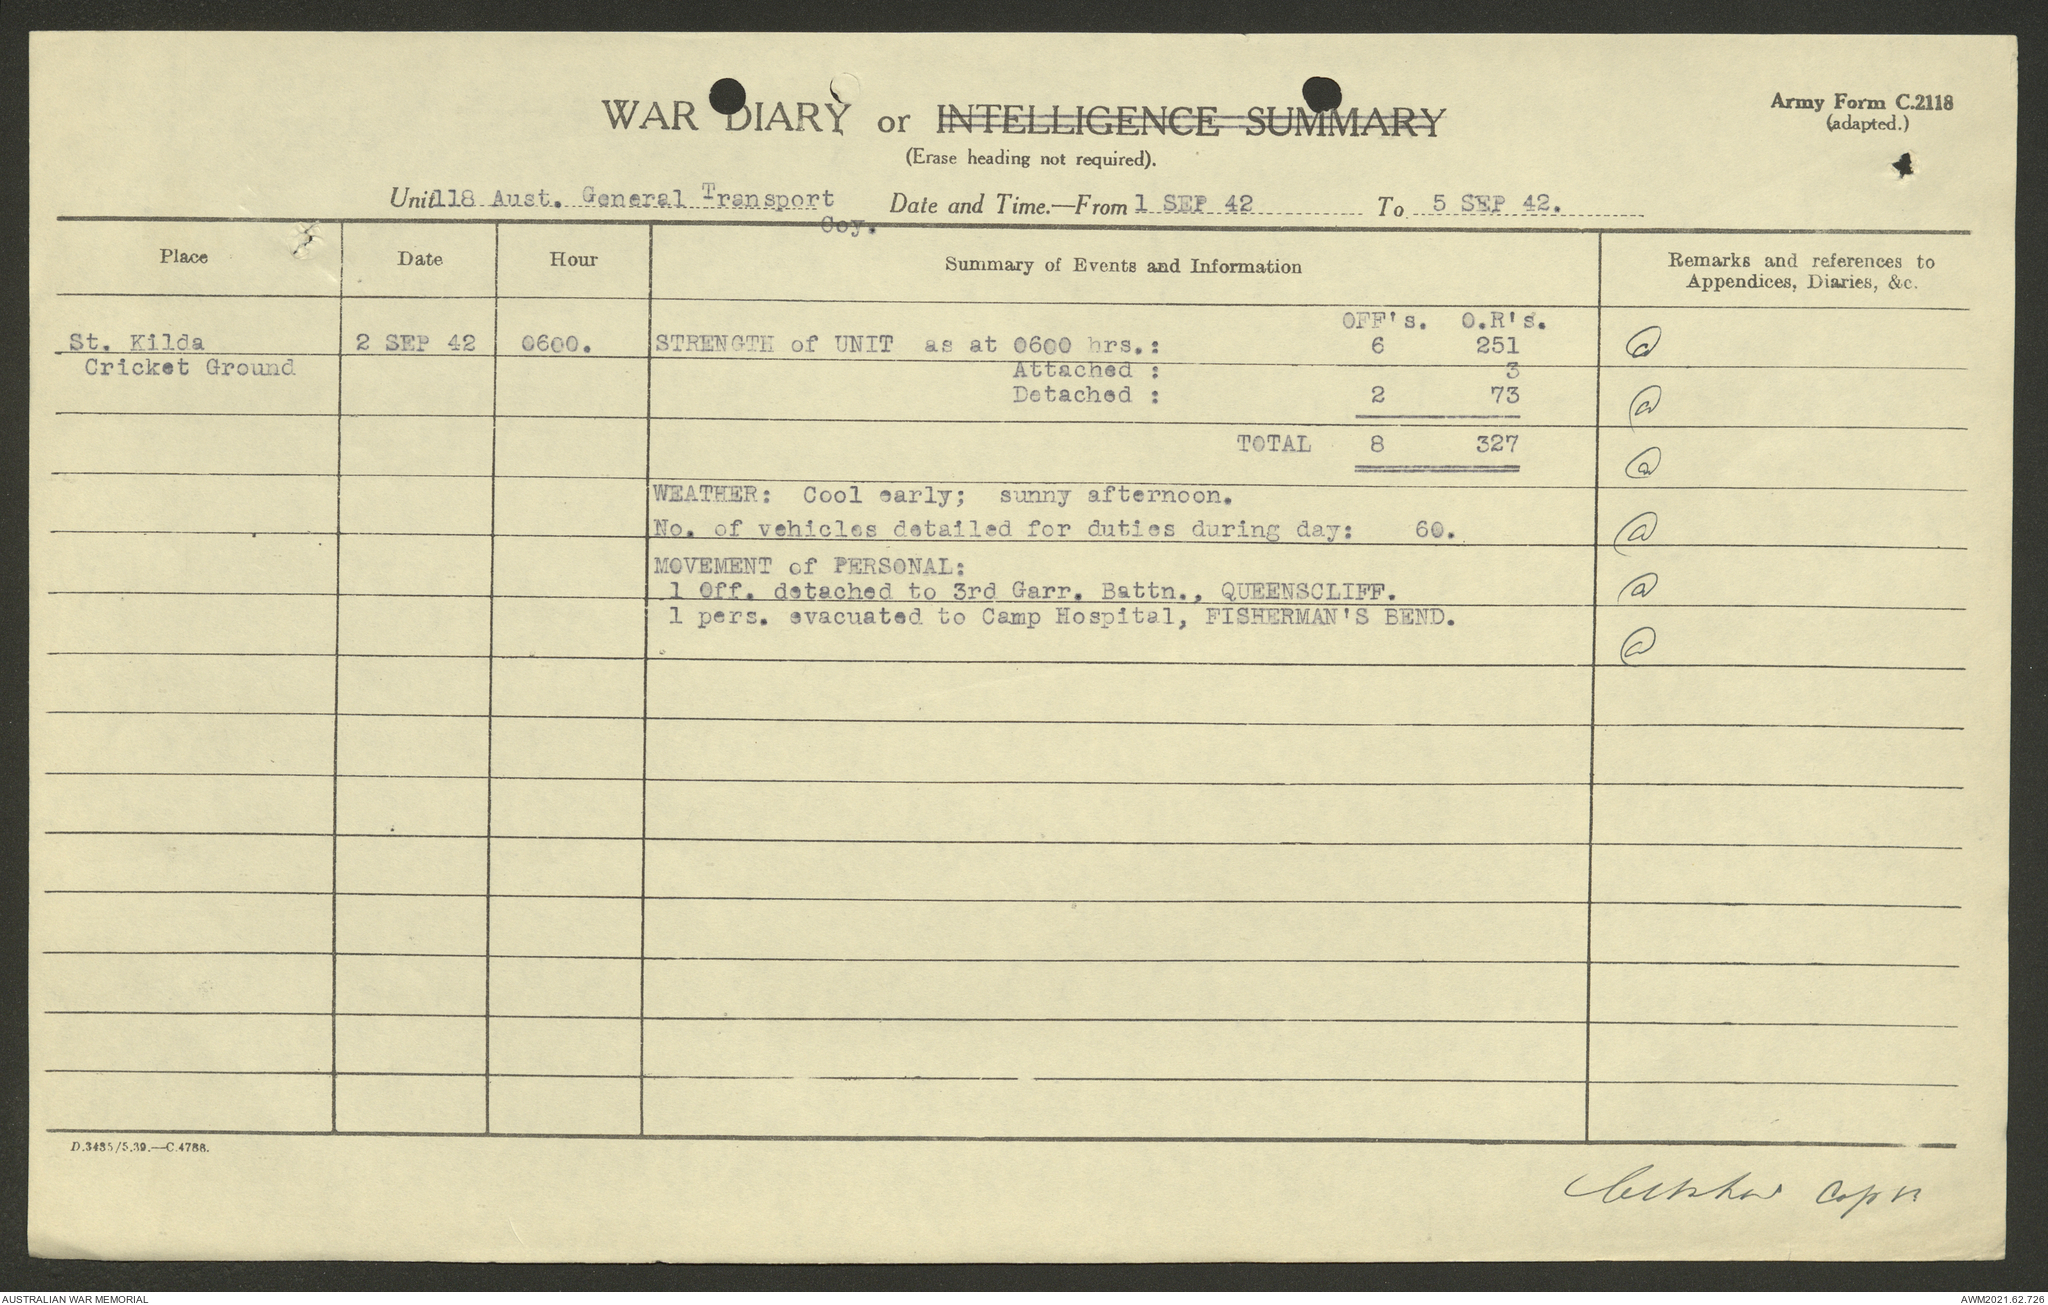 WAR DIARY or INTELLIGENCE SUMMARY
Army Form C.2118
(adapted.)
(Erase heading not required).
Unit 118 Aust. General Transport Coy. Date and Time.—From 1 SEP 42 To 5 SEP 42.
Place Date Hour Summary of Events and Information Remarks and references to Appendices, Diaries, &c.
OFF's. O.R's.
St. Kilda 2 SEP 42 0600. STRENGTH of UNIT as at 0600 hrs.: 6 251
Cricket Ground Attached : 3
Detached : 2 73
TOTAL 8 327
WEATHER: Cool early; sunny afternoon.
No. of vehicles detailed for duties during day: 60.
MOVEMENT of PERSONAL:
1 Off. detached to 3rd Garr. Battn., QUEENSCLIFF.
1 pers. evacuated to Camp Hospital, FISHERMAN'S BEND.
D.3485/5.39.—C.4788.
Captn
AUSTRALIAN WAR MEMORIAL
AWM2021.62.726